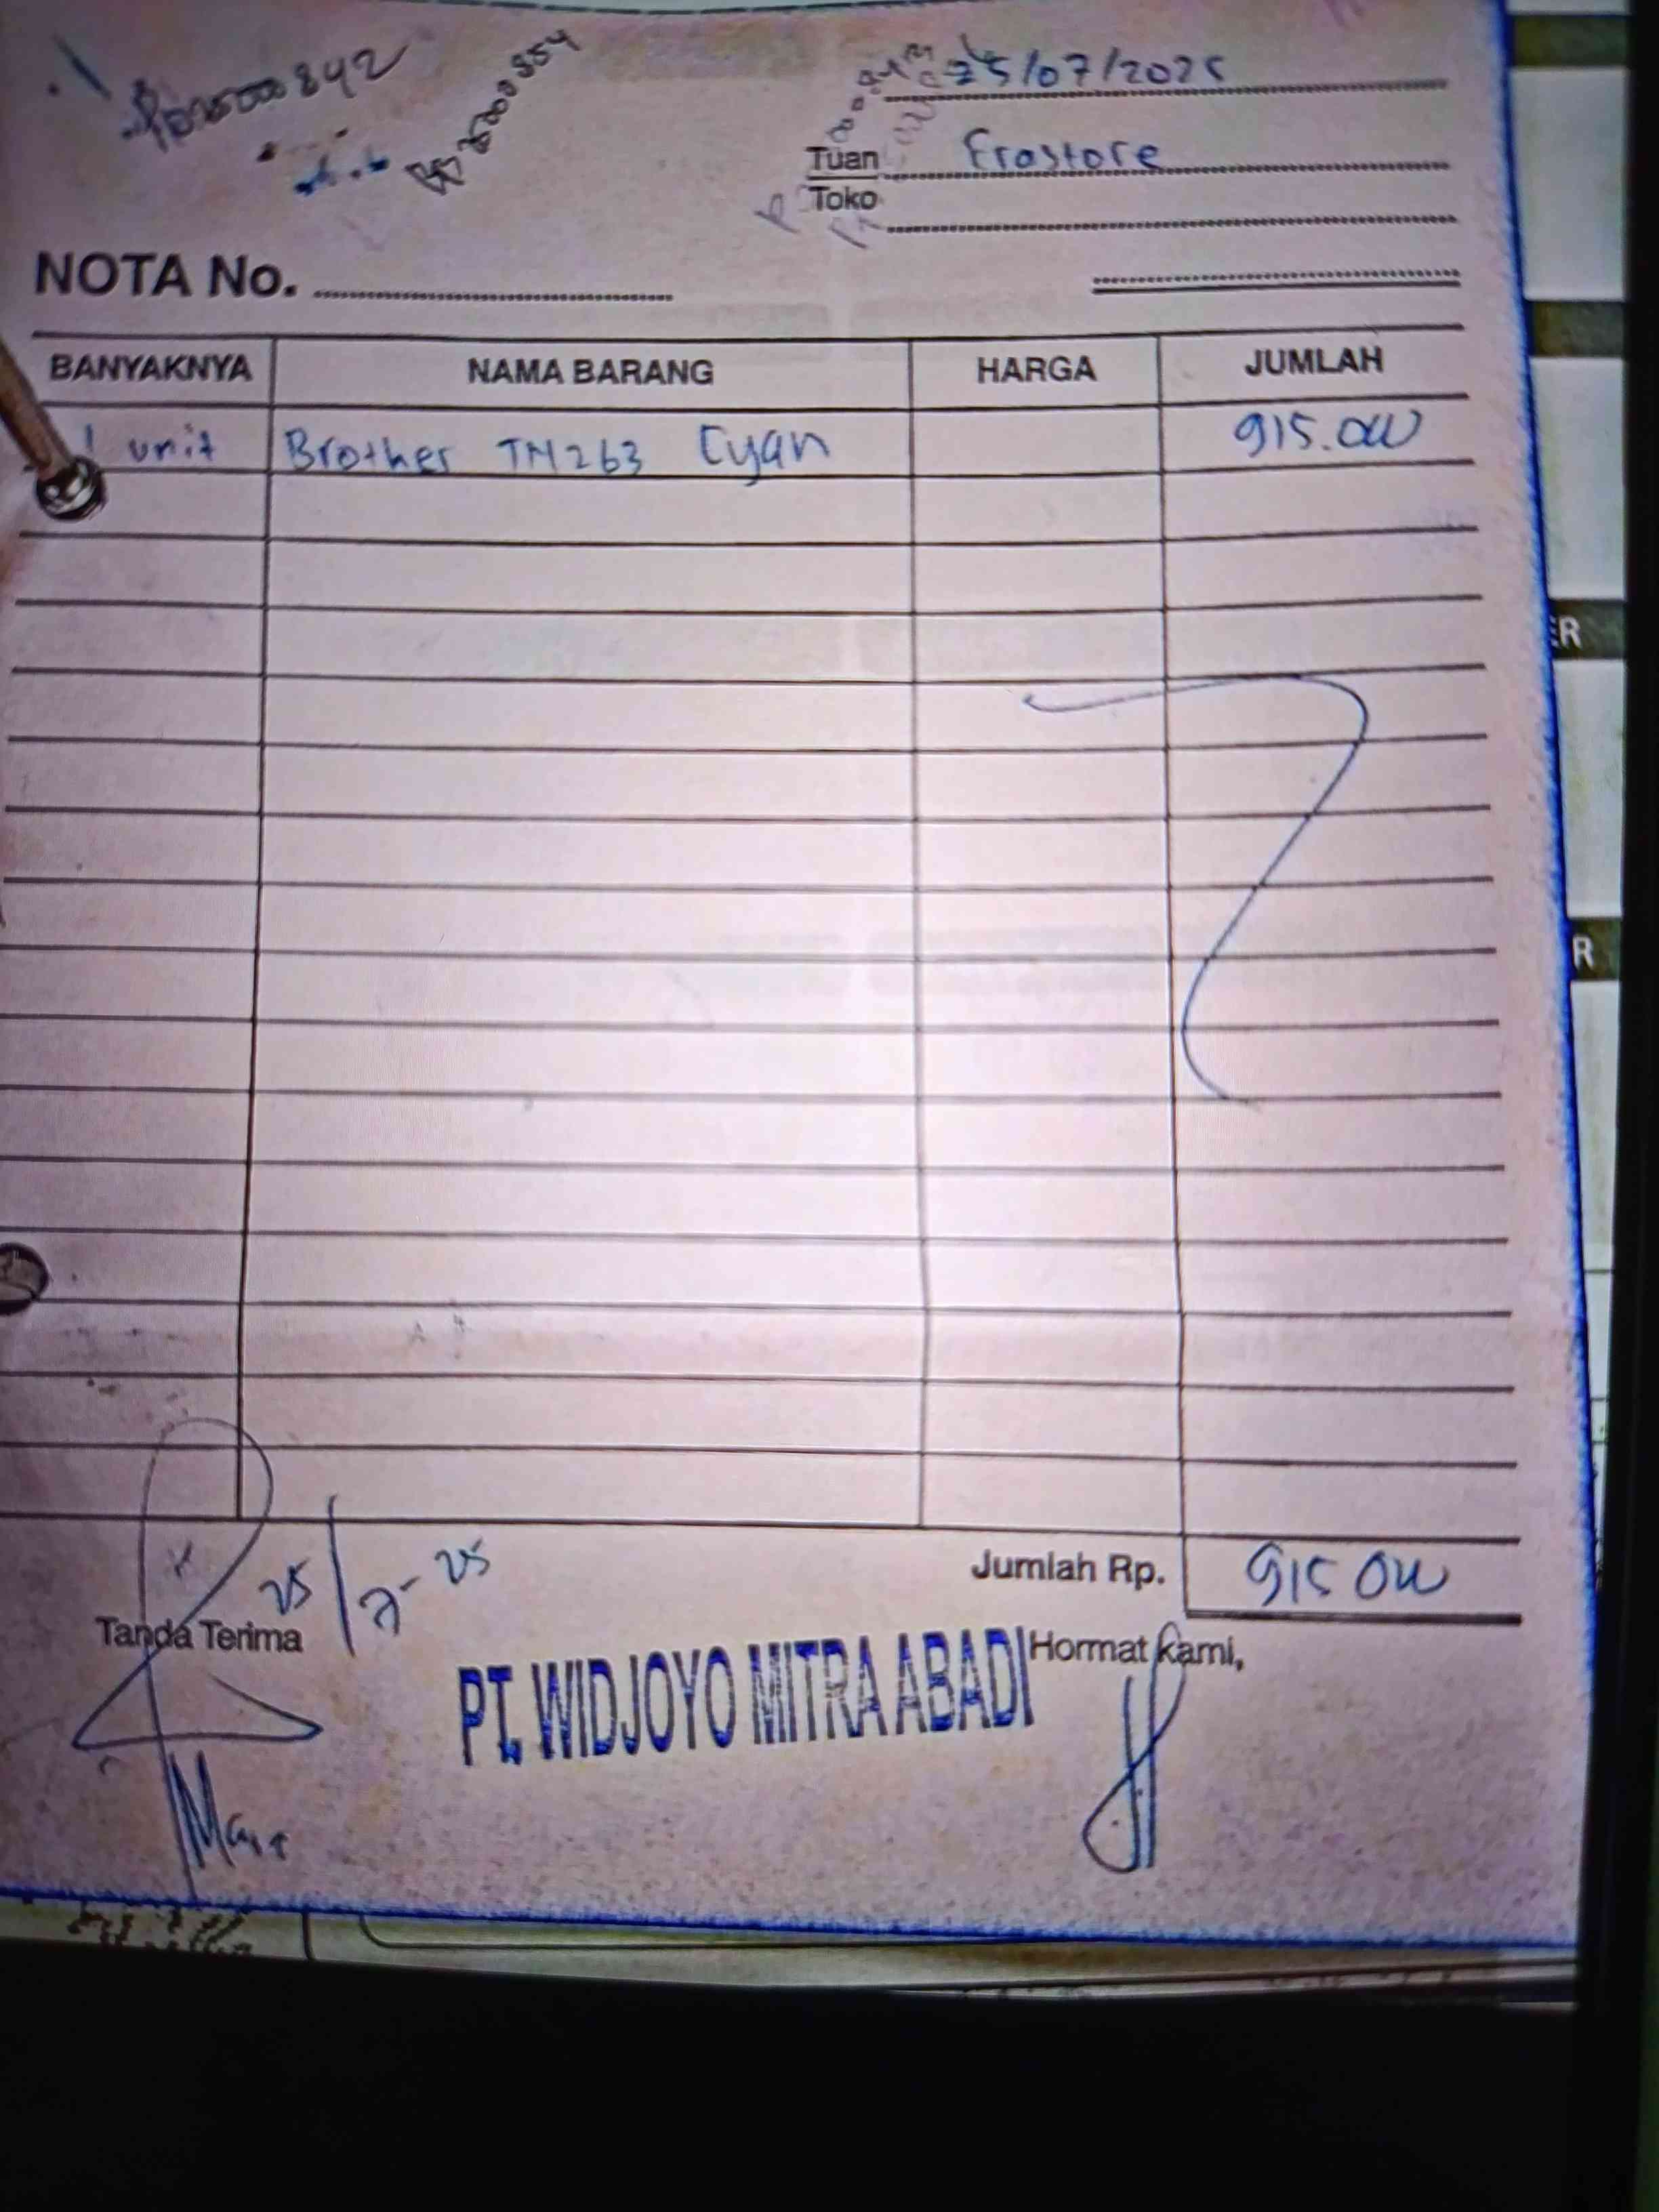 25/07/2025
Tuan Erastore
Toko
NOTA No.
BANYAKNYA NAMA BARANG HARGA JUMLAH
1 unit Brother TN263 Cyan 915.000
Jumlah Rp. 915 000
25/7-25
Tanda Terima Hormat kami,
PT. WIDJOYO MITRA ABADI
ER
R